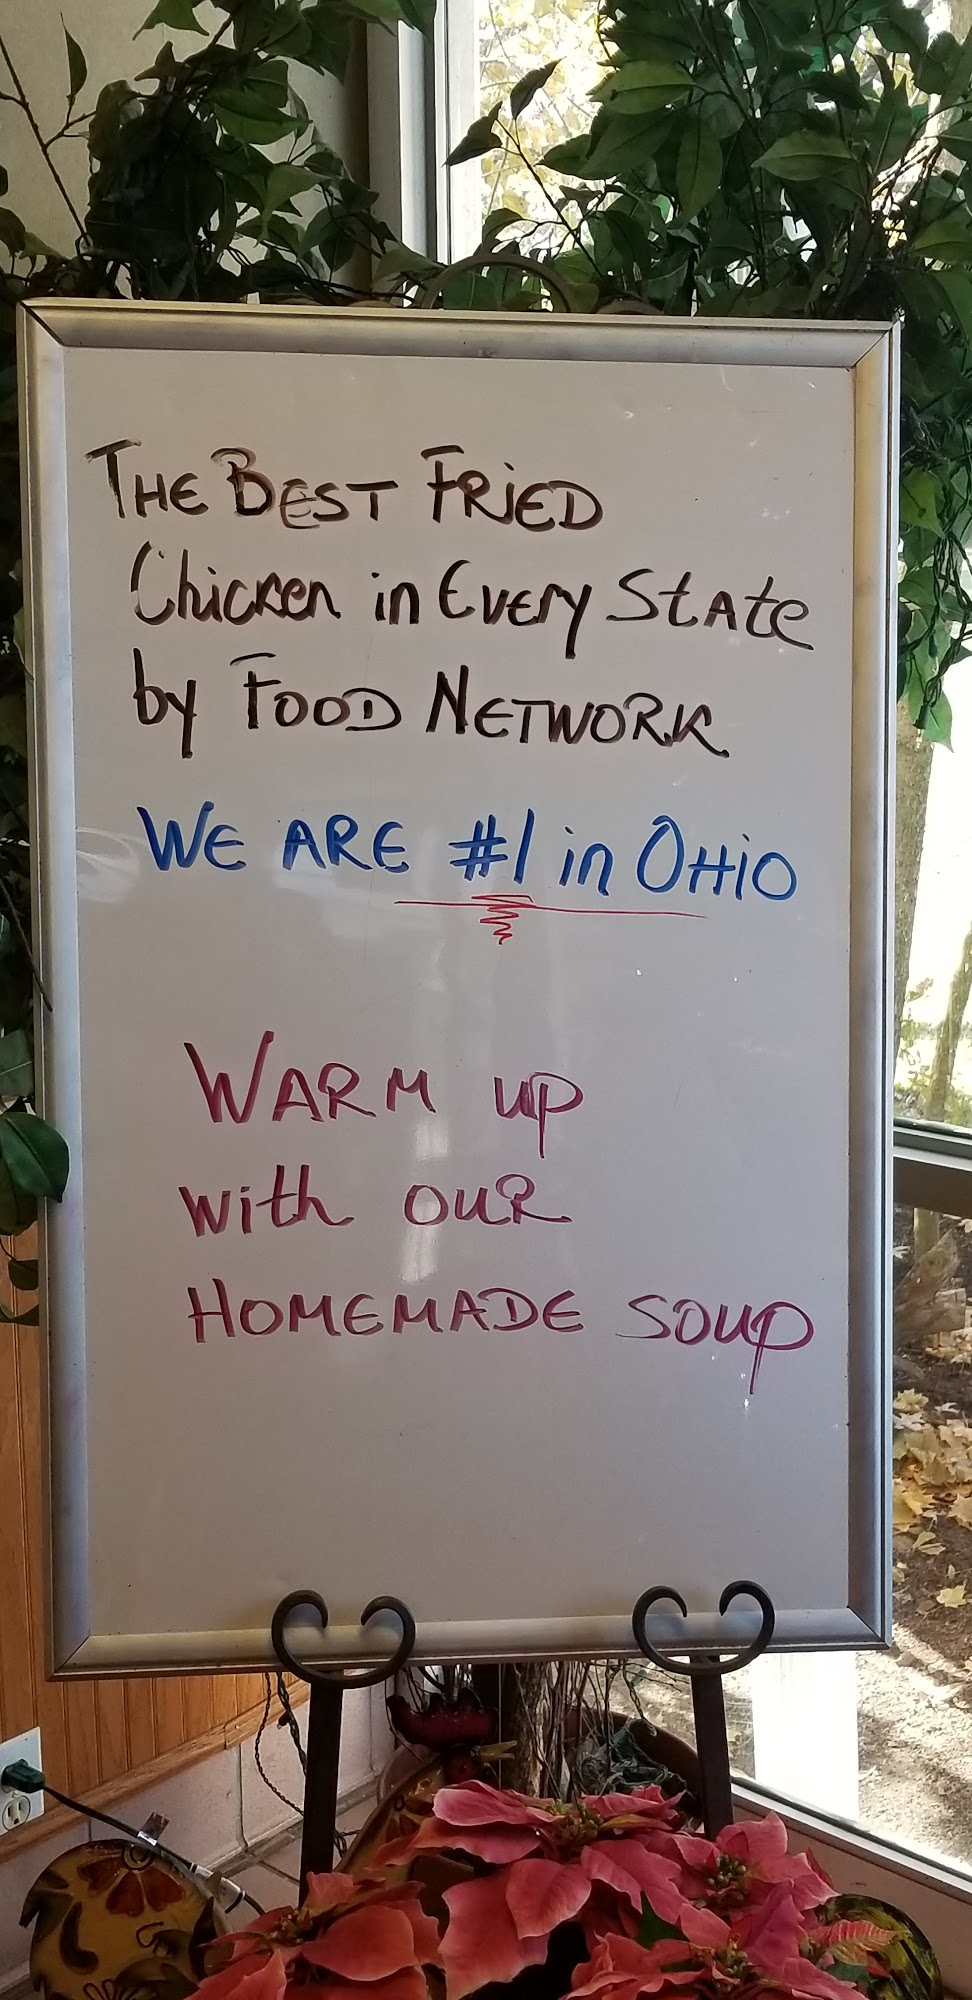 THE BEST FRIED
Chicken in EVERY STATE
by FOOD NETWORK
WE ARE #1 in OHIO
WARM UP
with OUR
HOMEMADE SOUP